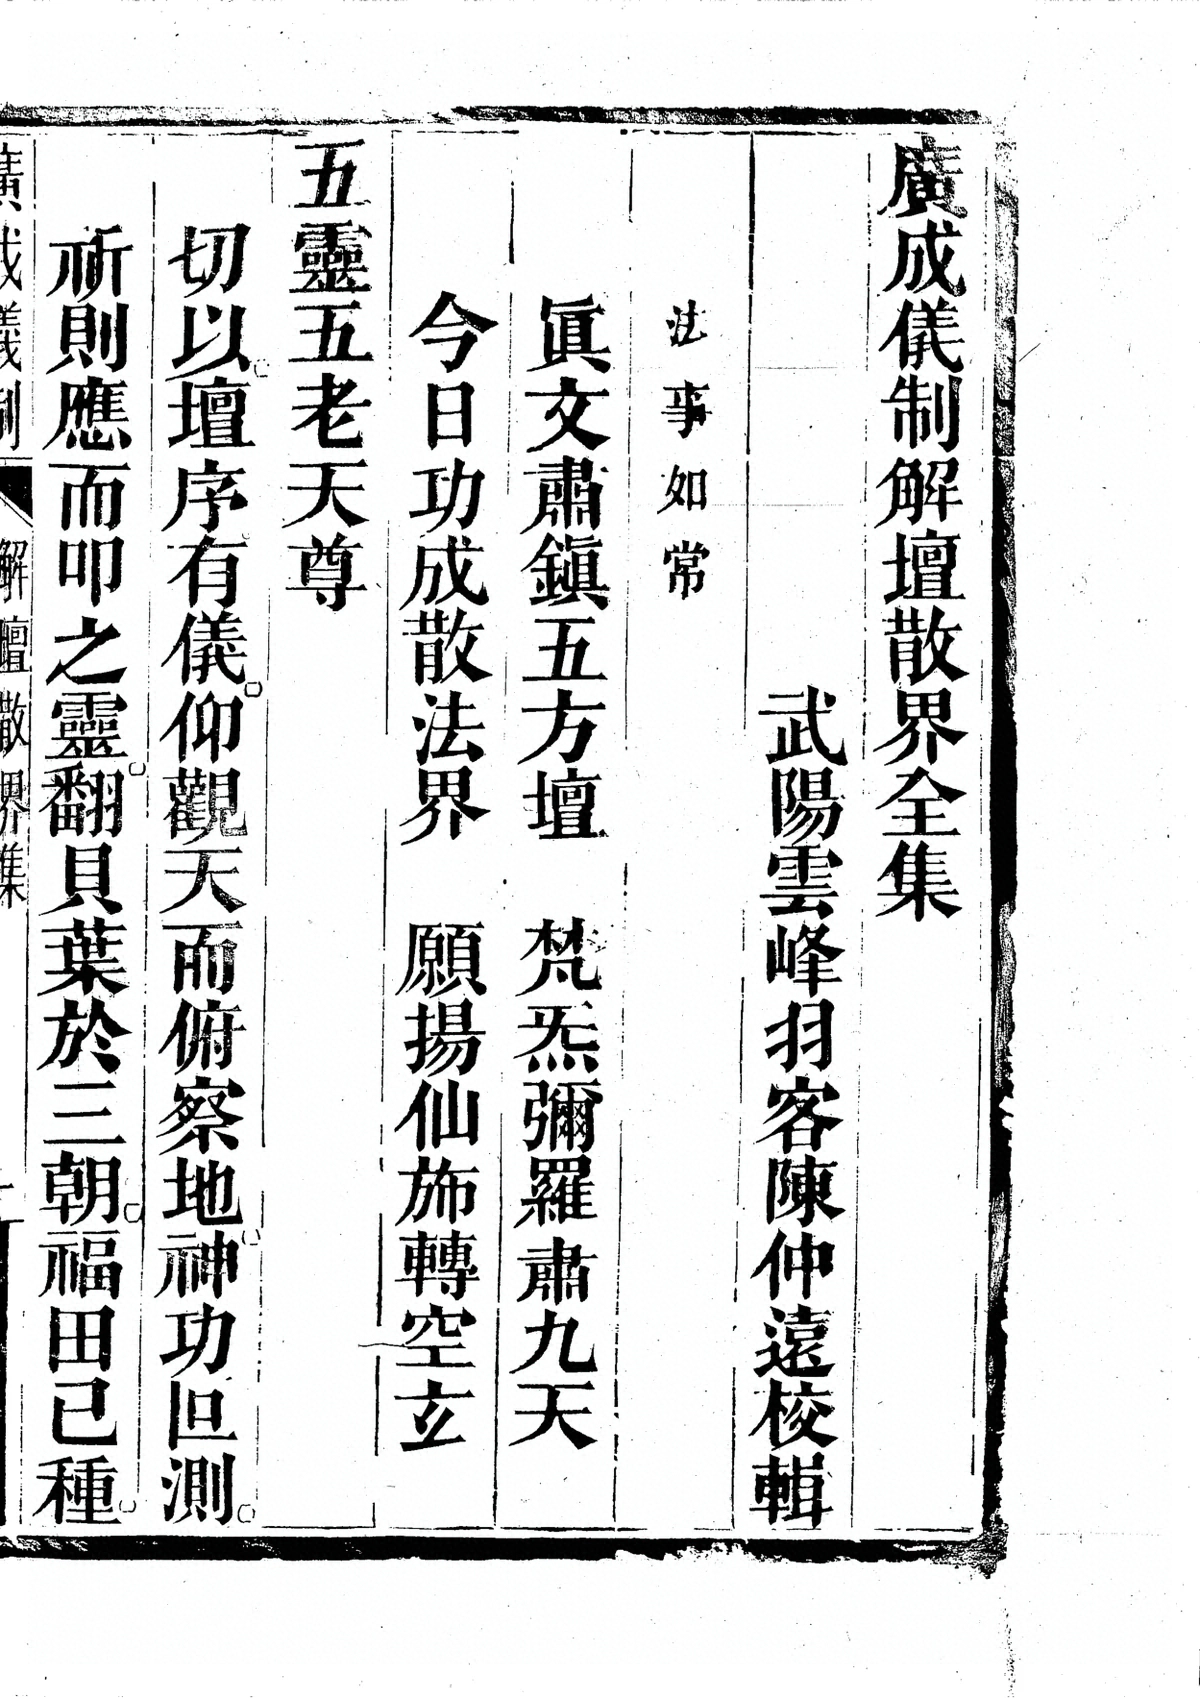 廣成儀制解壇散界全集
武陽雲峰羽客陳仲遠校輯
法事如常
眞文肅鎭五方壇　梵炁彌羅肅九天
今日功成散法界　願揚仙旆轉空玄
五靈五老天尊
切以壇序有儀仰觀天而俯察地神功叵測
祈則應而叩之靈翻貝葉於三朝福田已種
廣成儀制　解壇散界集　一